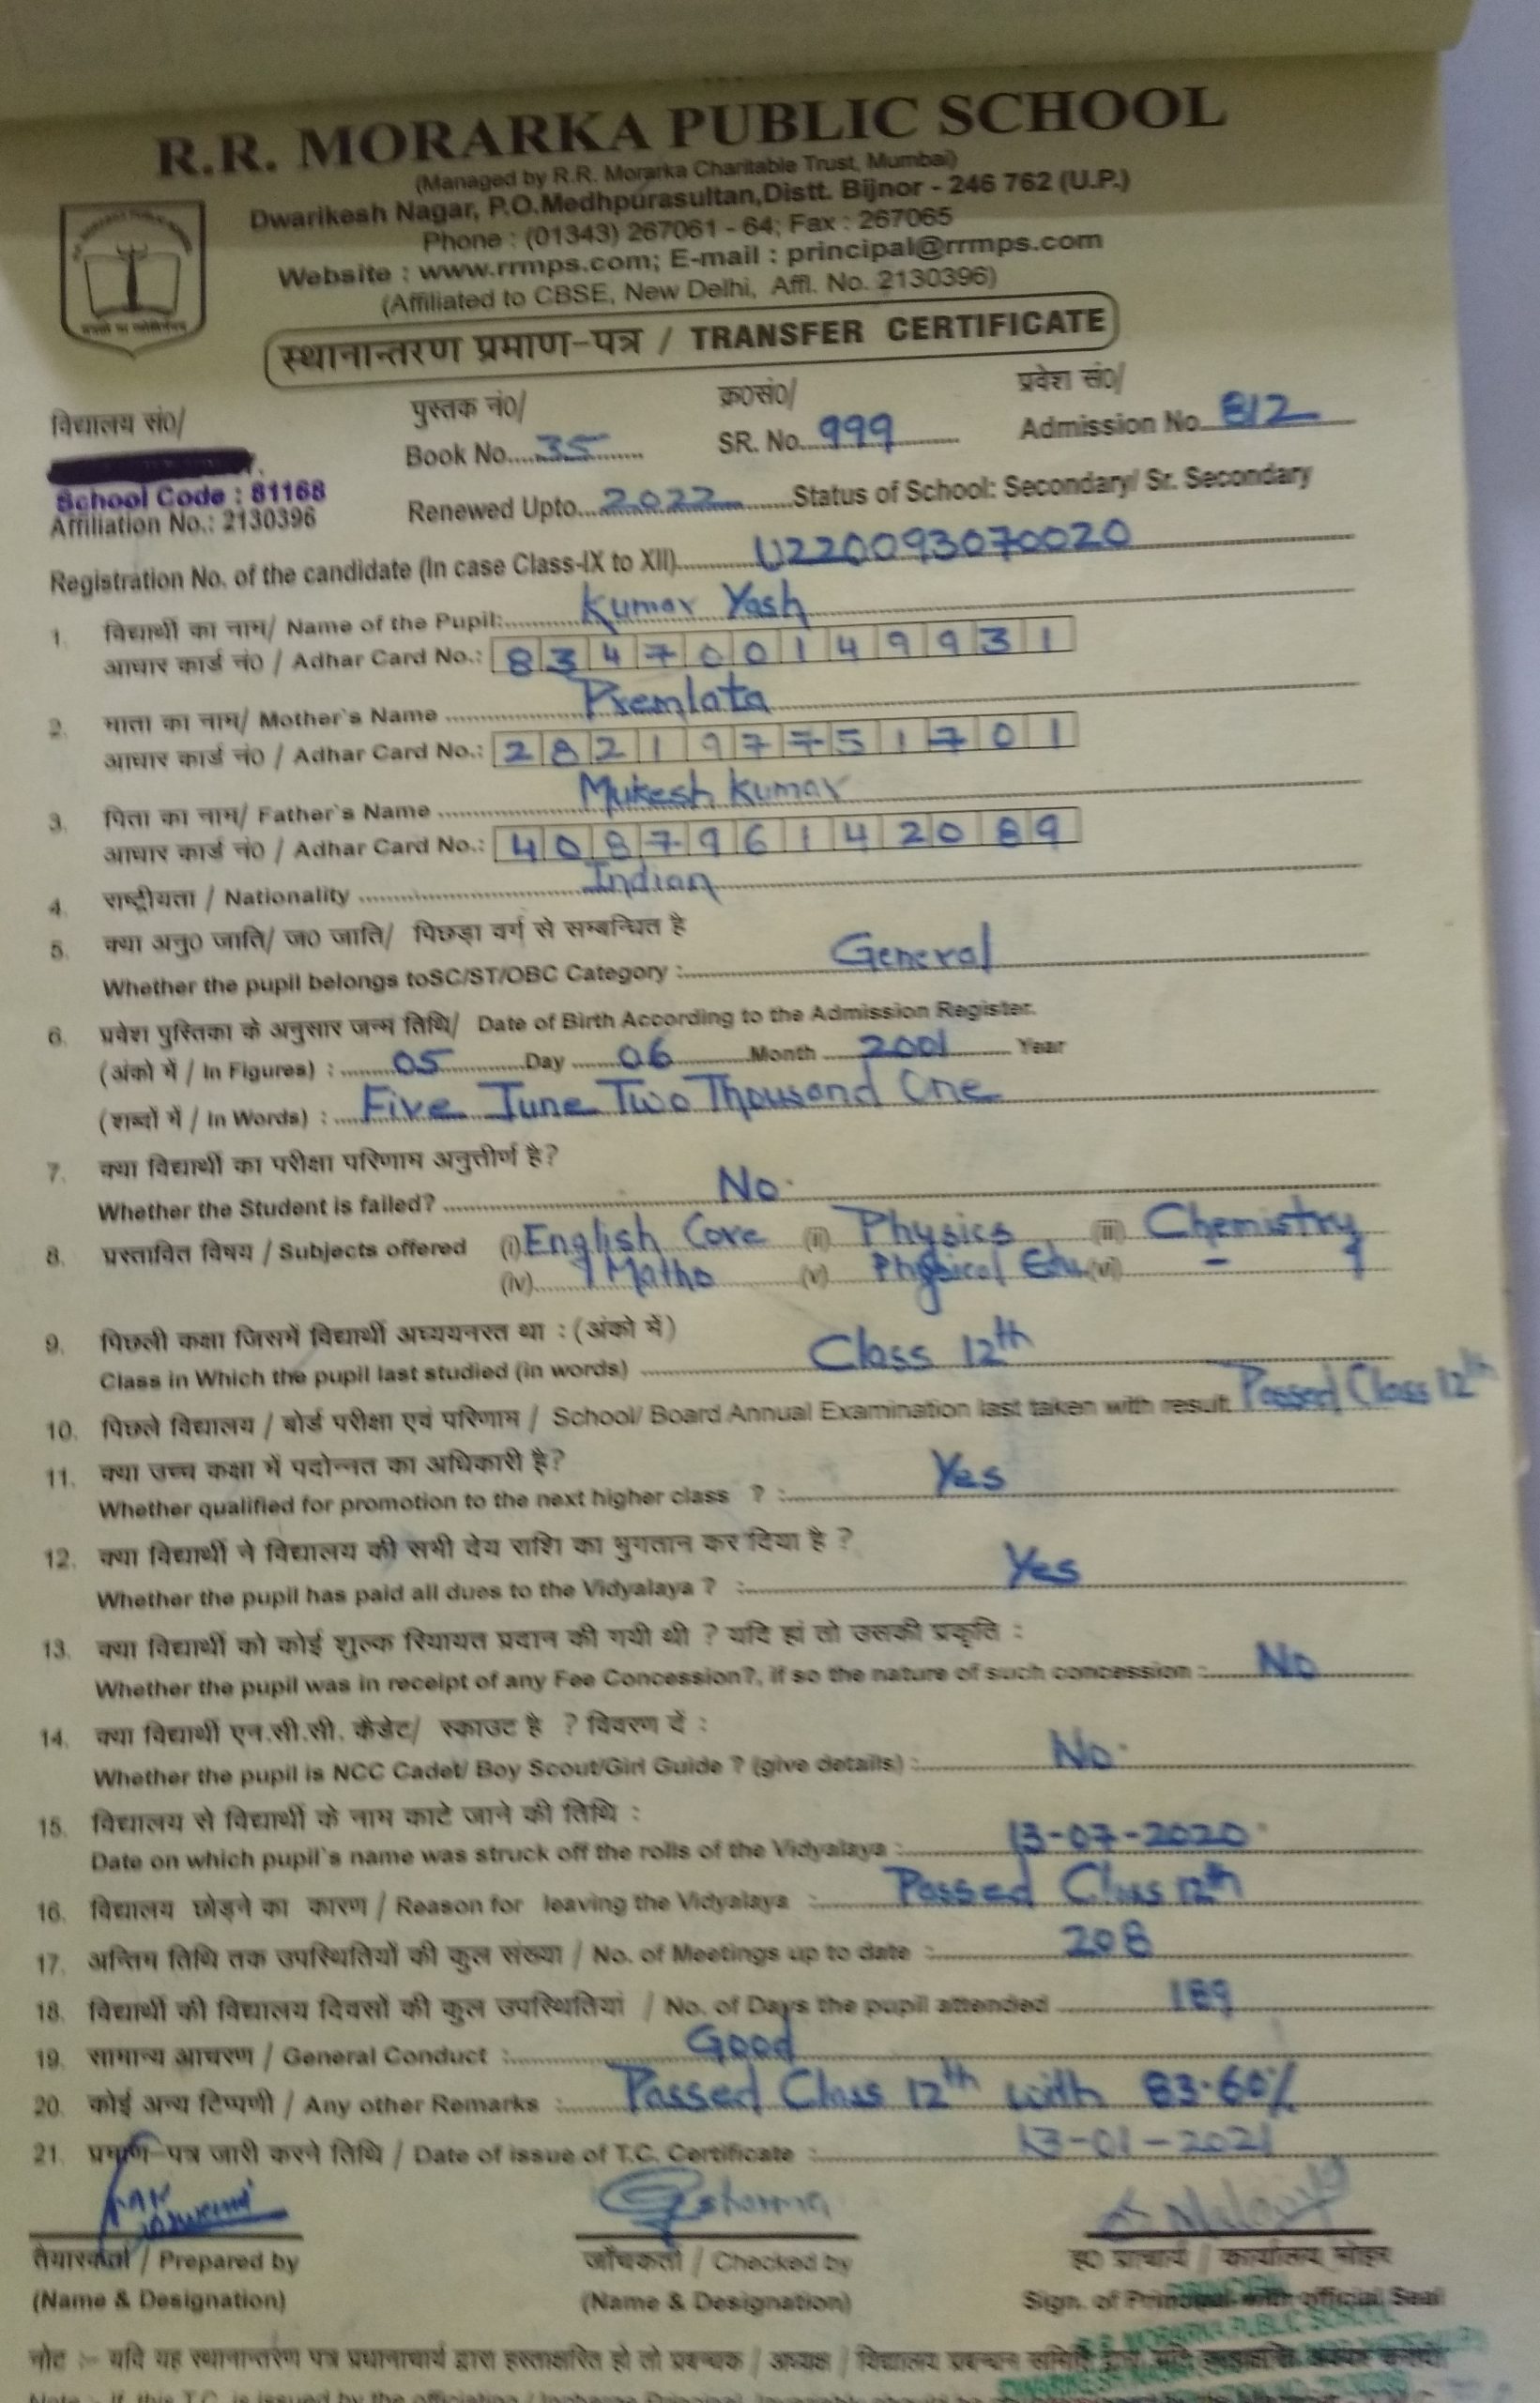 R.R. MORARKA PUBLIC SCHOOL
(Managed by R.R. Morarka Charitable Trust, Mumbai)
Dwarikesh Nagar, P.O.Medhpurasultan,Distt. Bijnor - 246 762 (U.P.)
Phone : (01343) 267061 - 64; Fax : 267065
Website : www.rrmps.com; E-mail : principal@rrmps.com
(Affiliated to CBSE, New Delhi, Affl. No. 2130396)
स्थानान्तरण प्रमाण-पत्र / TRANSFER CERTIFICATE
विद्यालय सं0/ पुस्तक नं0/ क्र0सं0/ प्रवेश सं0/
Book No. 35 SR. No. 999 Admission No. 812
School Code : 81168
Affiliation No.: 2130396 Renewed Upto 2022 Status of School: Secondary/ Sr. Secondary
Registration No. of the candidate (In case Class-IX to XII) U220093070020
1. विद्यार्थी का नाम/ Name of the Pupil: Kumar Yash
आधार कार्ड नं0 / Adhar Card No.: 834700149931
2. माता का नाम/ Mother's Name Premlata
आधार कार्ड नं0 / Adhar Card No.: 282197751701
3. पिता का नाम/ Father's Name Mukesh Kumar
आधार कार्ड नं0 / Adhar Card No.: 408796142089
4. राष्ट्रीयता / Nationality Indian
5. क्या अनु0 जाति/ ज0 जाति/ पिछड़ा वर्ग से सम्बन्धित है
Whether the pupil belongs toSC/ST/OBC Category : General
6. प्रवेश पुस्तिका के अनुसार जन्म तिथि/ Date of Birth According to the Admission Register.
(अंको में / In Figures) : 05 Day 06 Month 2001 Year
(शब्दों में / In Words) : Five June Two Thousand One
7. क्या विद्यार्थी का परीक्षा परिणाम अनुत्तीर्ण है?
Whether the Student is failed? No.
8. प्रस्तावित विषय / Subjects offered (i) English Core (ii) Physics (iii) Chemistry
(iv) Maths (v) Physical Edu. (vi) -
9. पिछली कक्षा जिसमें विद्यार्थी अघ्ययनरत था : (अंको में)
Class in Which the pupil last studied (in words) Class 12th
10. पिछले विद्यालय / बोर्ड परीक्षा एवं परिणाम / School/ Board Annual Examination last taken with result Passed Class 12th
11. क्या उच्च कक्षा में पदोन्नत का अधिकारी है?
Whether qualified for promotion to the next higher class ? : Yes
12. क्या विद्यार्थी ने विद्यालय की सभी देय राशि का भुगतान कर दिया है ?
Whether the pupil has paid all dues to the Vidyalaya ? : Yes
13. क्या विद्यार्थी को कोई शुल्क रियायत प्रदान की गयी थी ? यदि हां तो उसकी प्रकृति :
Whether the pupil was in receipt of any Fee Concession?, if so the nature of such concession : No
14. क्या विद्यार्थी एन.सी.सी. कैडेट/ स्काउट है ? विवरण दें :
Whether the pupil is NCC Cadet/ Boy Scout/Girl Guide ? (give details) : No.
15. विद्यालय से विद्यार्थी के नाम काटे जाने की तिथि :
Date on which pupil's name was struck off the rolls of the Vidyalaya : 13-07-2020
16. विद्यालय छोड़ने का कारण / Reason for leaving the Vidyalaya : Passed Class 12th
17. अन्तिम तिथि तक उपस्थितियों की कुल संख्या / No. of Meetings up to date : 208
18. विद्यार्थी की विद्यालय दिवसों की कुल उपस्थितियां / No. of Days the pupil attended 189
19. सामान्य आचरण / General Conduct : Good
20. कोई अन्य टिप्पणी / Any other Remarks : Passed Class 12th with 83.60%
21. प्रमाण-पत्र जारी करने तिथि / Date of issue of T.C. Certificate : 13-01-2021
तैयारकर्ता / Prepared by जाँचकर्ता / Checked by ह0 प्राचार्य / कार्यालय मोहर
(Name & Designation) (Name & Designation) Sign. of Principal with official Seal
R.R. MORARKA PUBLIC SCHOOL
नोट :- यदि यह स्थानान्तरण पत्र प्रधानाचार्य द्वारा हस्ताक्षरित हो तो प्रबन्धक / अध्यक्ष / विद्यालय प्रबन्धन समिति द्वारा
Note :- If this T.C. is issued by the officiating / Incharge Principal,